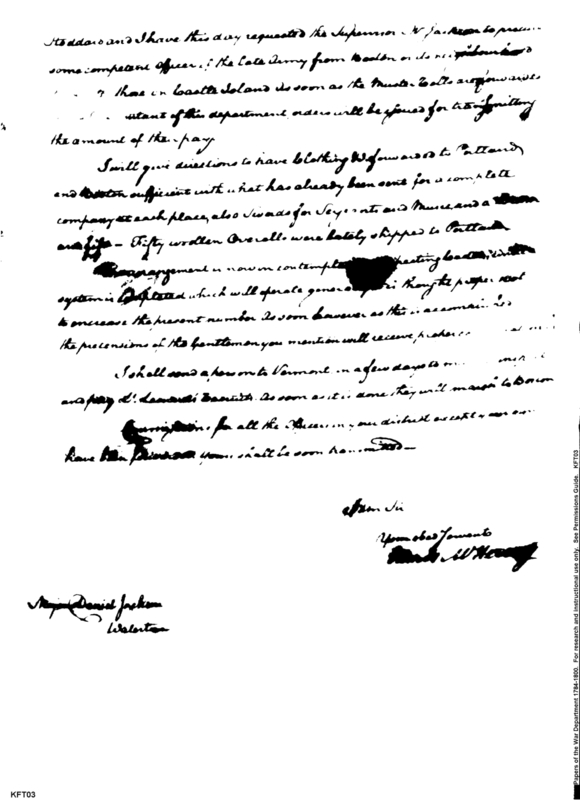 Stoddard and I have this day requested the Supervisor Mr Jackson to procure
some competent Officer of the late Army from Boston or its
those in Castle Island As soon as the Muster Rolls are forwarded
of this department orders will be issued for transmitting
the amount of their pay
I will give directions to have Clothing &c forwarded to Portland
and Boston sufficient with what has already been sent for a complete
company at each place, also Swords for Sergeants and Music and a Drum
and fife - Fifty woollen Overalls were lately shipped to Portland
arrangement is now on
system is which will operate thought proper not
to increase the present number As soon however as this is
the pretensions of the Gentlemen you mention will receive
I shall send a person to Vermont in a few days to
and pay Lt. Leonards As soon as it is done they will march to Boston
for all the Officers in your district except your own
have been yours shall be soon transmitted —
I am Sir
Your obed Servant
James McHenry
Major Daniel Jackson
Watertown
KFT03
Papers of the War Department 1784-1800. For research and instructional use only. See Permissions Guide. KFT03